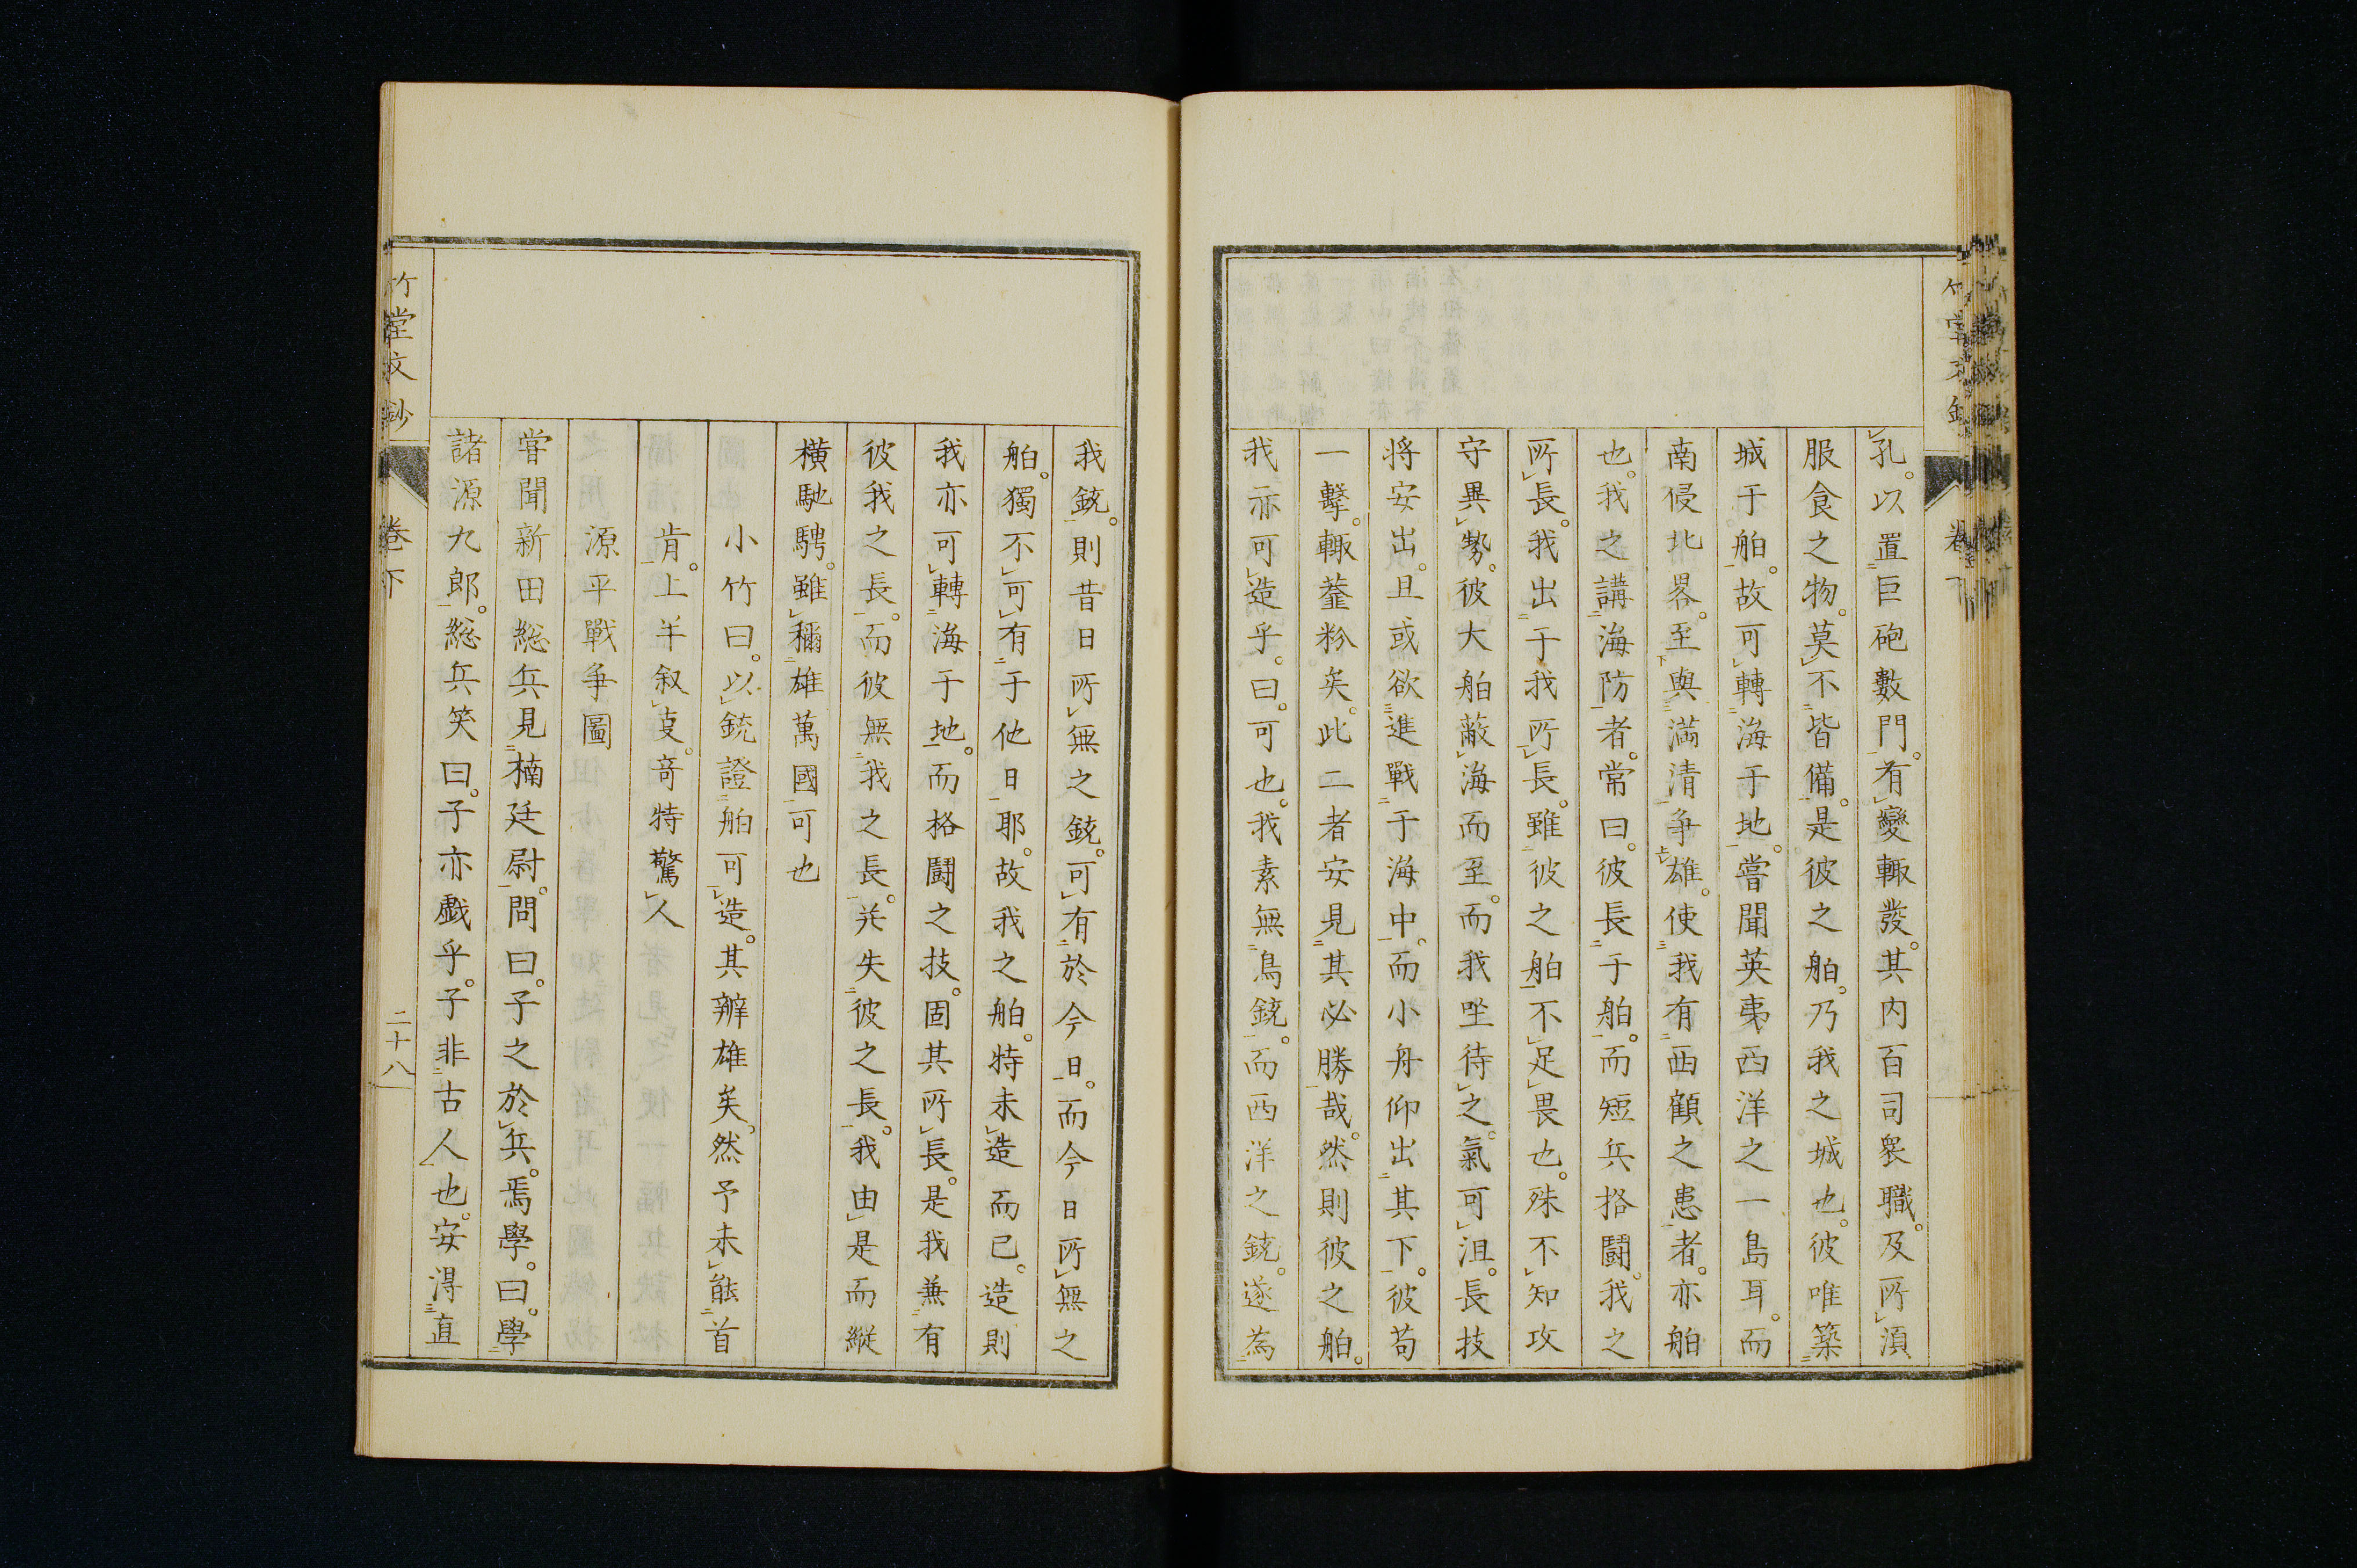 孔。以置巨砲數門。有變輙發。其内百司衆職。及所湏
服食之物。莫不皆備。是彼之舶。乃我之城也。彼唯築
城于舶。故可轉海于地。嘗聞英夷西洋之一島耳。而
南侵北畧。至與満清争雄。使我有西顧之患者。亦舶
也。我之講海防者。常曰。彼長于舶。而短兵挌闘。我之
所長。我出于我所長。雖彼之舶不足畏也。殊不知攻
守異勢。彼大舶蔽海而至。而我坐待之。氣可沮。長技
将安出。且或欲進戰于海中。而小舟仰出其下。彼苟
一擊。輙虀粉矣。此二者安見其必勝哉。然則彼之舶。
我亦可造乎。曰。可也。我素無鳥銃。而西洋之銃。遂為
我銃。則昔日所無之銃。可有於今日。而今日所無之
舶。獨不可有于他日耶。故我之舶。特未造而已。造則
我亦可轉海于地。而格闘之技。固其所長。是我兼有
彼我之長。而彼無我之長。并失彼之長。我由是而縦
横馳騁。雖稱雄萬國可也
小竹曰。以銃證舶可造。其辨雄矣。然予未能首
肯。上半叙事。奇特驚人
源平戰争圖
嘗聞新田総兵見楠廷尉。問曰。子之於兵。焉學。曰。學
諸源九郎。総兵笑曰。子亦戯乎。子非古人也。安得直
竹堂文鈔
卷下
二十八